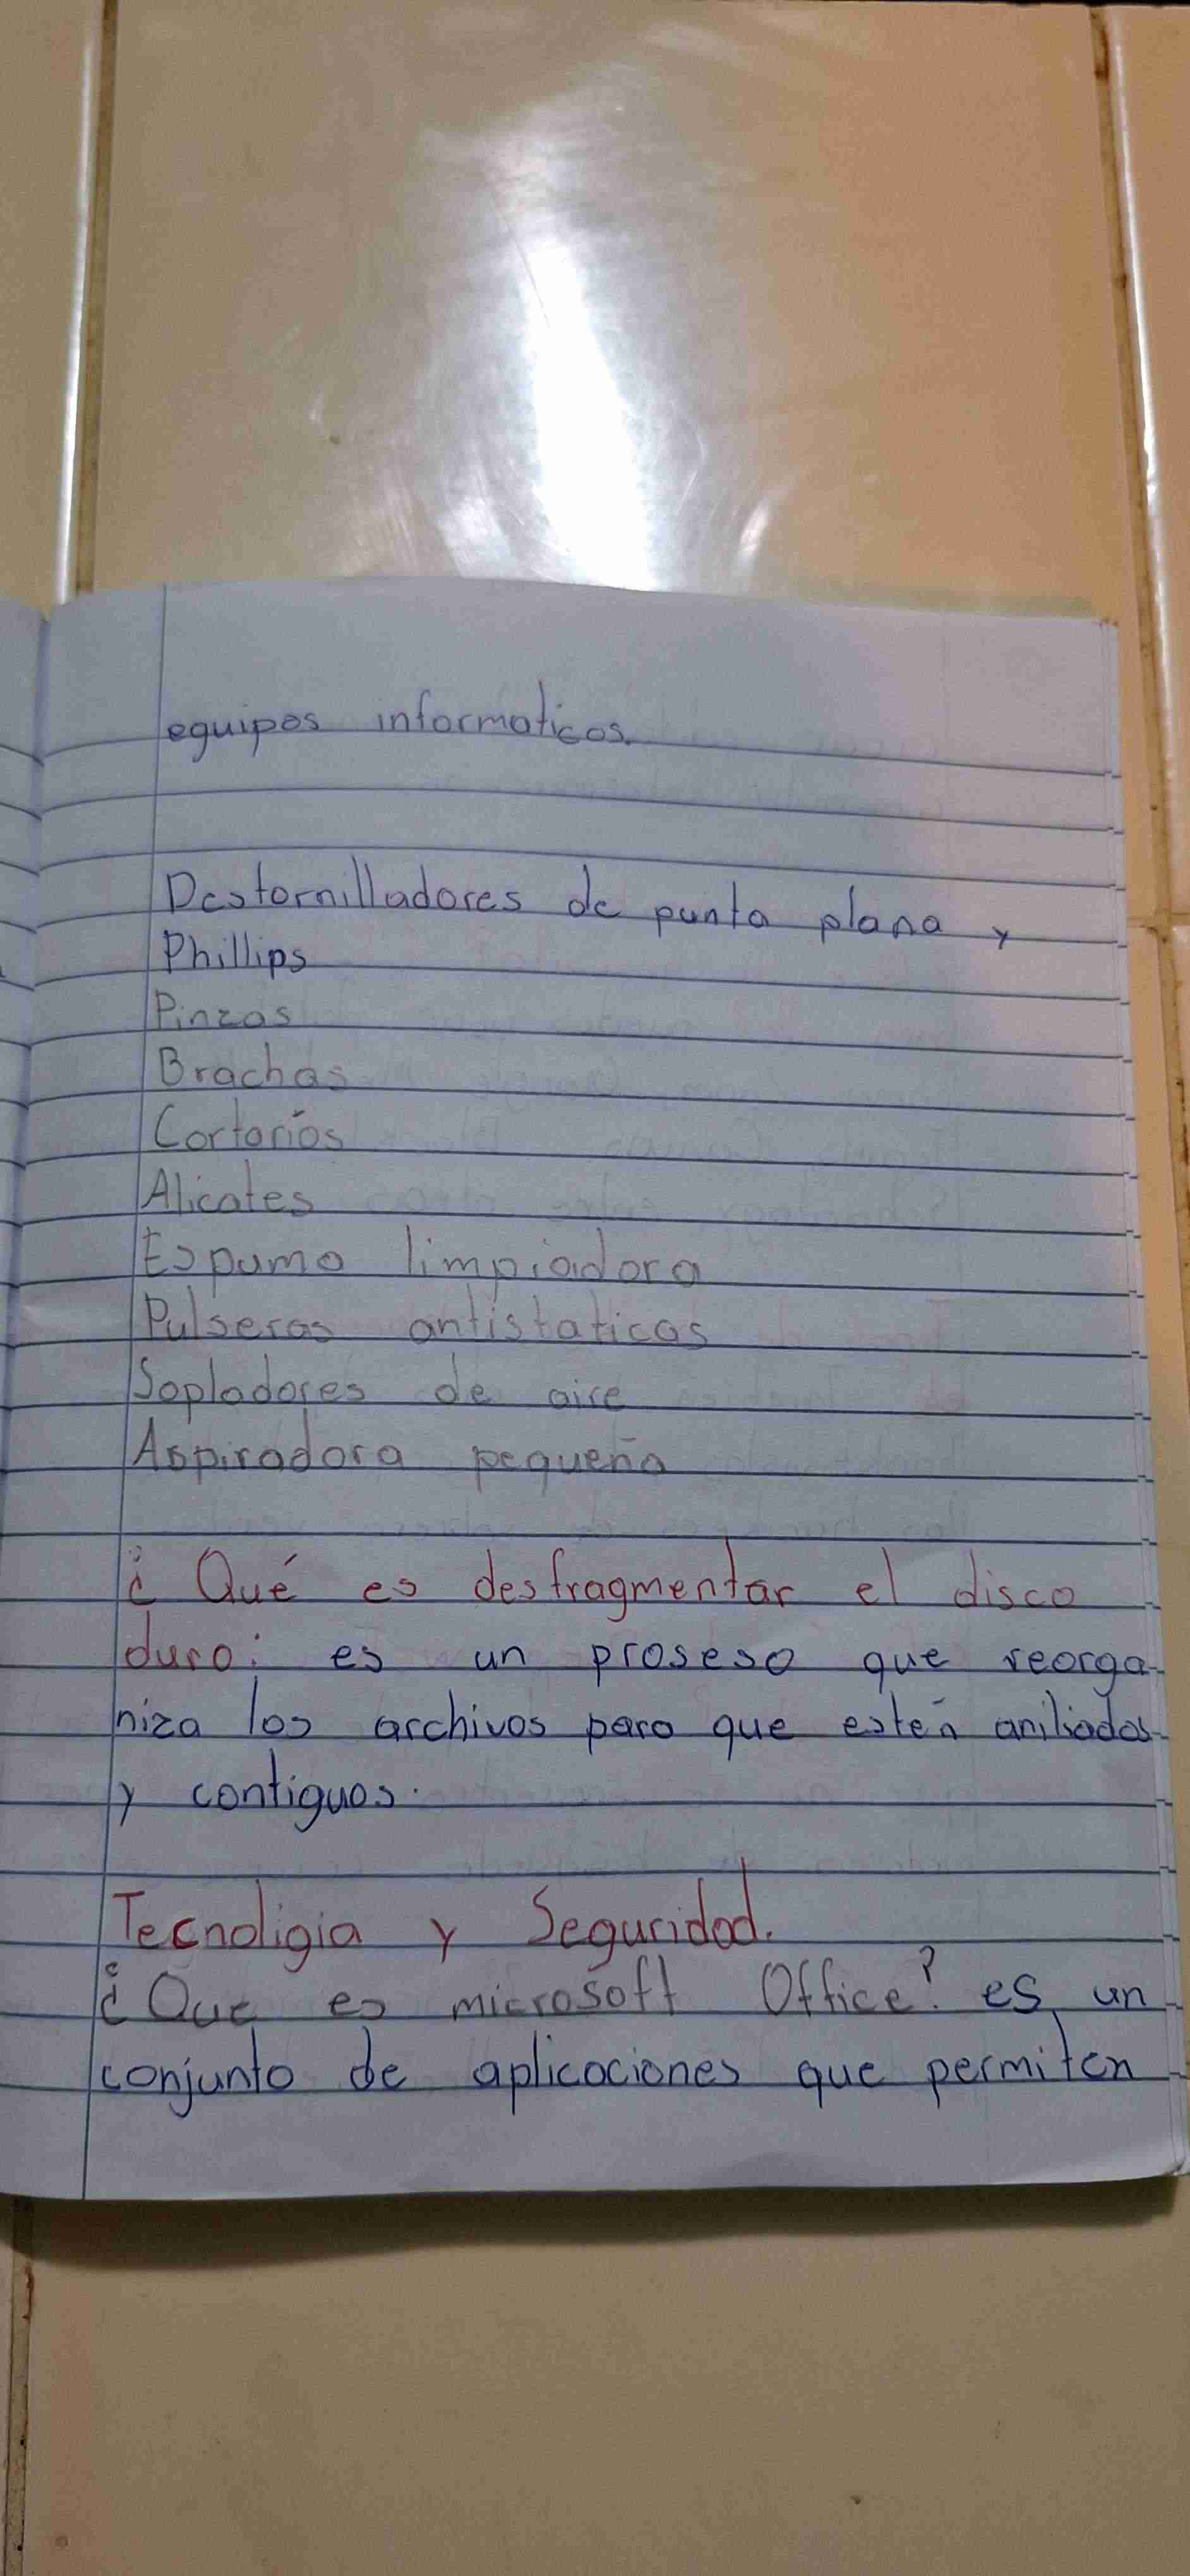 equipos informaticos.
Destornilladores de punta plana y
Phillips
Pinzas
Brochas
Cortaríos
Alicates
Espuma limpiadora
Pulseras antistaticas
Sopladores de aire
Aspiradora pequeña
¿Qué es desfragmentar el disco
duro: es un proseso que reorga-
niza los archivos para que estén
y contiguos.
Tecnoligia y Seguridad.
¿Que es microsoft Office? es un
conjunto de aplicaciones que permiten